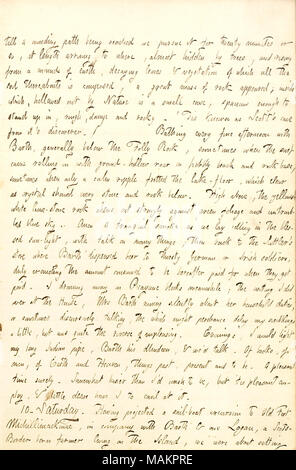 till a winding path being reached we pursue it for twenty minutes or
so, at length arriving to where, almost hidden by trees, and rising
from a mound of earth, decaying leaves & vegetation of which all the
soil thereabouts is composed, a great mass of rock appeared; within
which, hollowed out by Nature is a small cave, spacious enough to
stand up in, rough, damp and rocky. Tis known as Scott's cave
from it's discoverer. / Bathing every fine afternoon with
Barth, generally below the Folly Rock, sometimes when the surf
comes rolling in with grand hollow roar on pebbly beach and rock base,
sometimes when only a calm ripple fretted the lake-floor, which clear
as crystal shewed every stone and rock below. High above, the yellowish
white lime-stone rock stood out strongly against green foliage and untroub-
led blue sky. Anon a tranquil smoke as we lay rolling in the
blessed sun-light, with talk on many things; then back to the Suttler's
store where Barth dispensed beer to thirsty German or Irish soldiers,
duly enumerating the amount consumed to be hereafter paid for when they get
paid. I drawing away on Picayune blocks meanwhile, the writing I did
over at the Hunts, Mrs Barth moving silently about her household duties,
or sometimes discursively talking the while might perchance delay my scribbling
a little, but was quite the reverse of unpleasing. Evenings, I would light
my long Indian pipe, Barth his Meerschaum, & we'd talk. Of books, of
men, of Earth and Heaven, things past, present and to be. A pleasant
time surely. Somewhat busier than I'd want to be, but 'tis pleasant em-
ploy. & little desire have I to cavil at it.
10. Saturday. Having projected a sail-boat excursion to Old Fort
Michillimackinac, in company with Barth & one Logan, a Scotts-
Border born farmer living on the Island, we were about setting
alamy
Image ID: MAKPRE
www.alamy.com